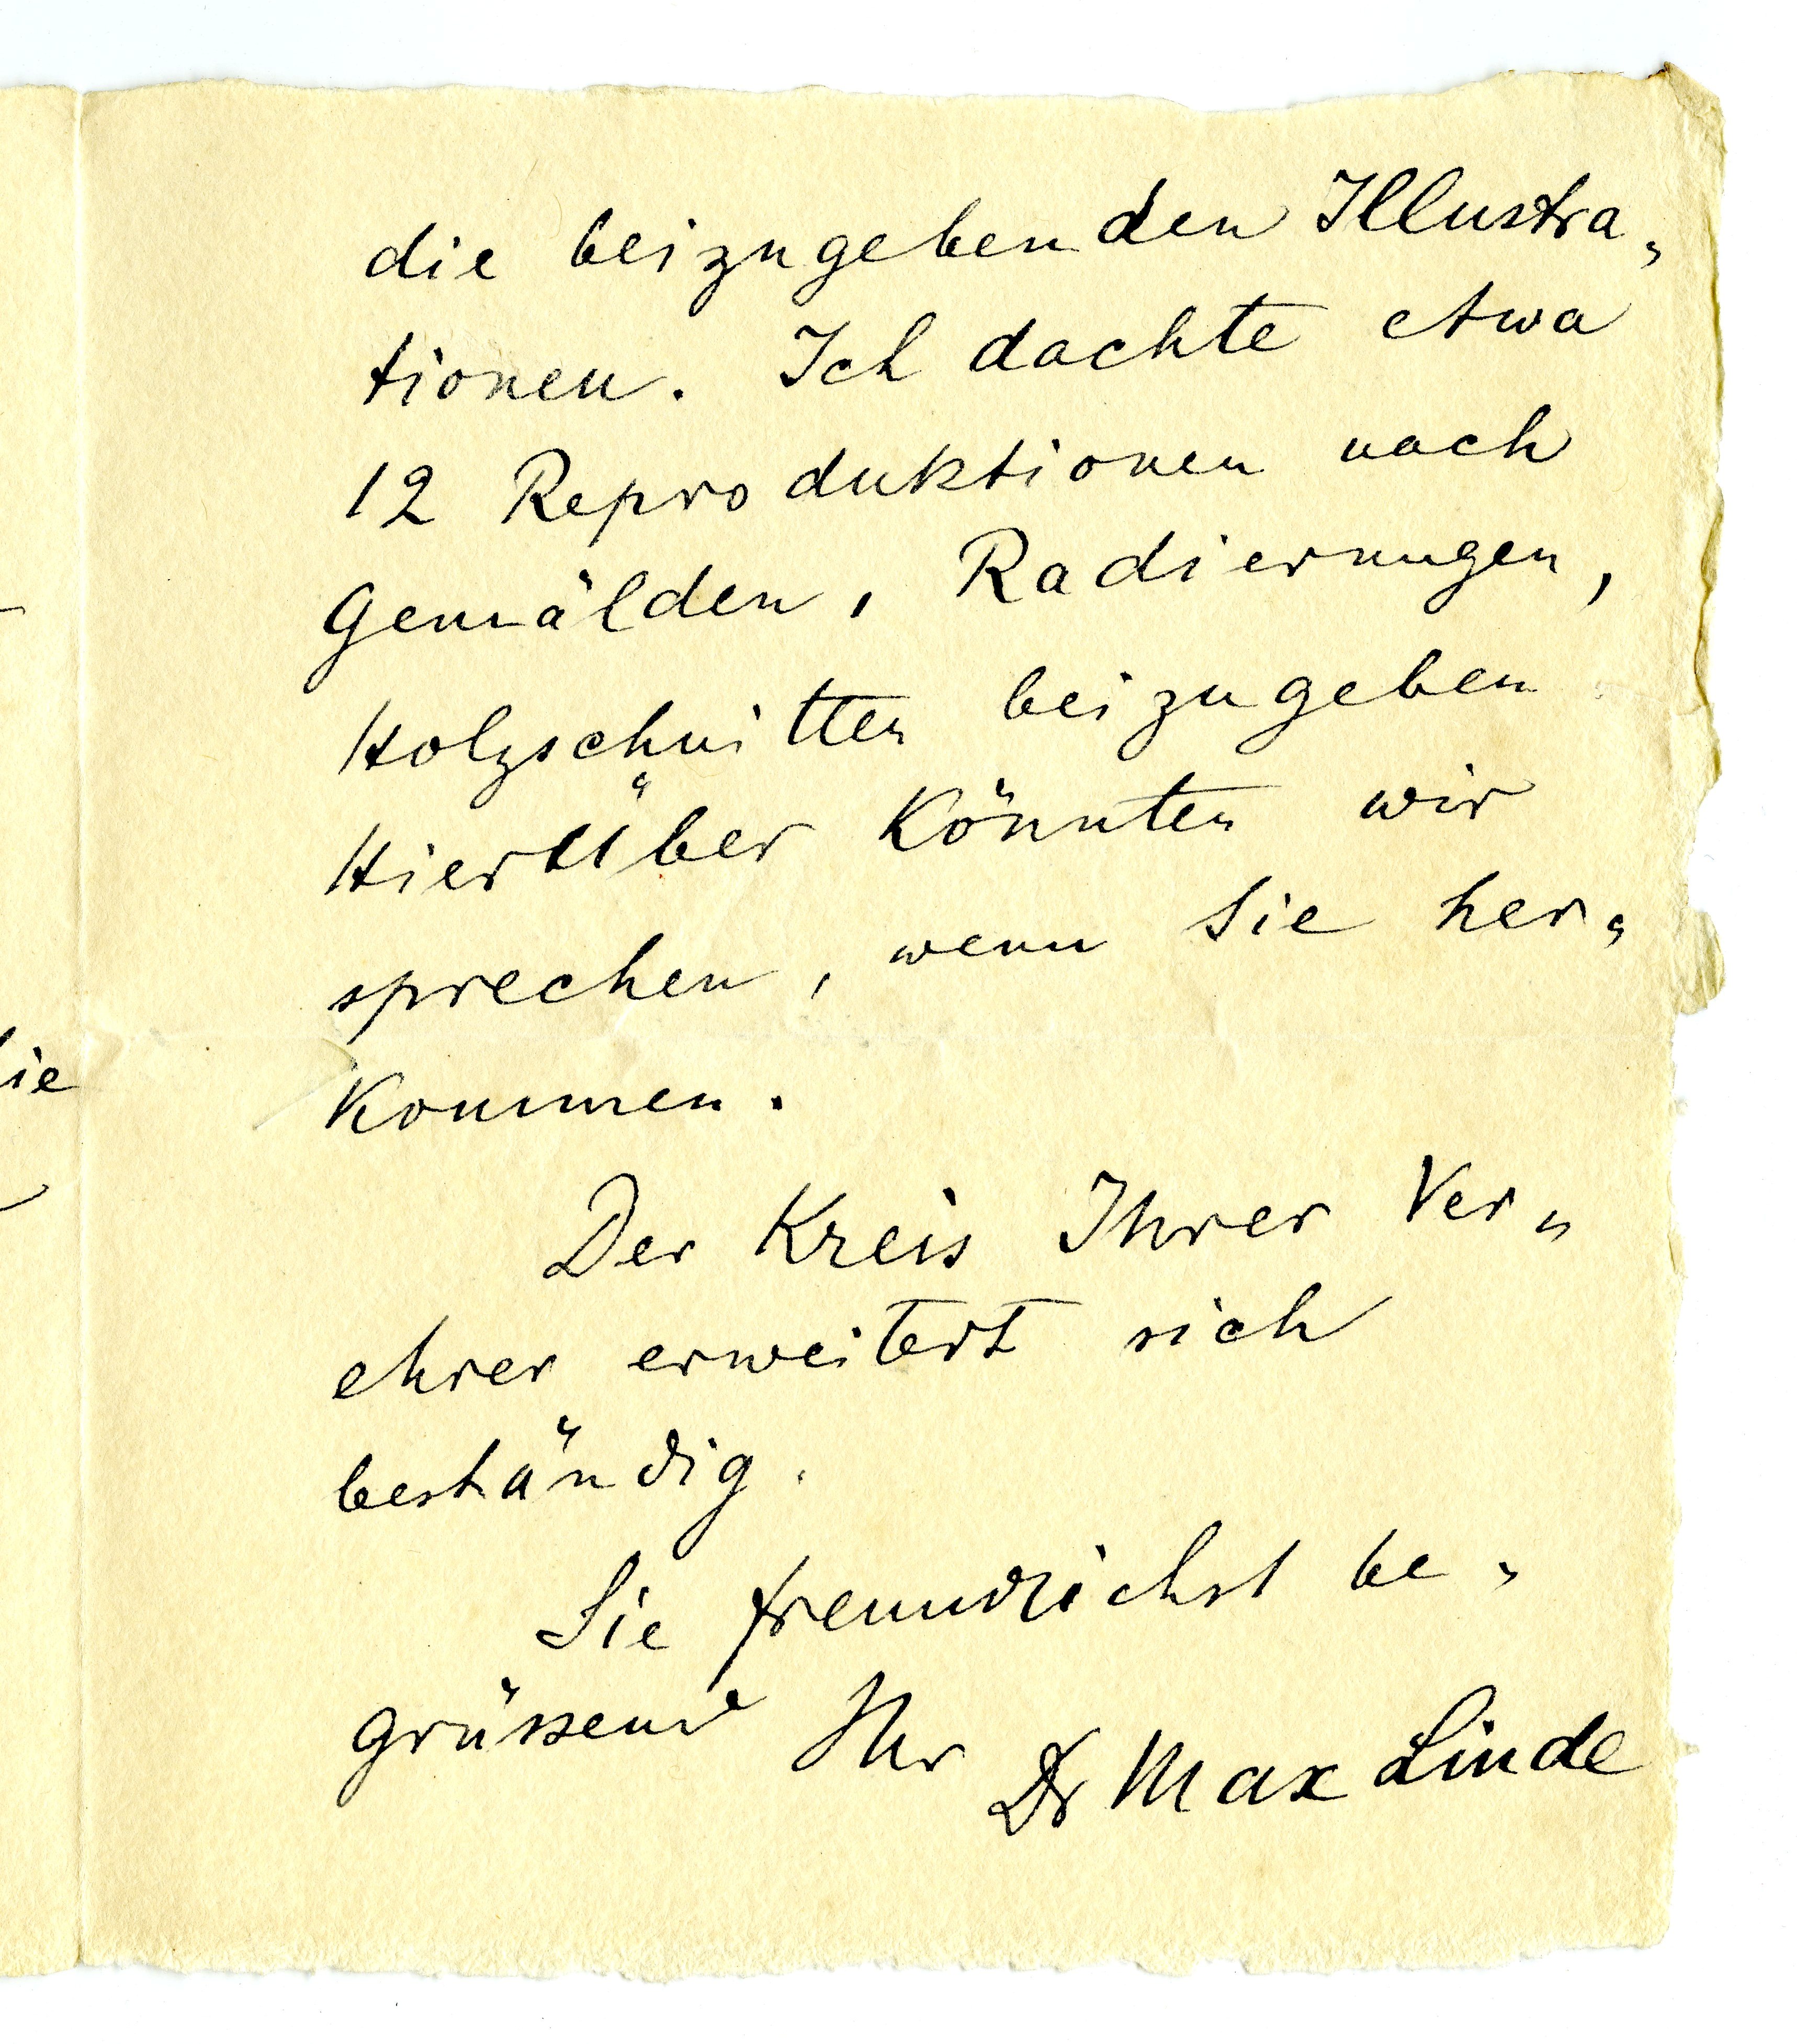 die beizugebenden Illustra„
tionen. Ich dachte etwa
12 Reproduktionen nach
Gemälden, Radierungen,
Holzschnitten beizugeben
Hierüber könnten wir
sprechen, wenn Sie her„
kommen.
Der Kreis Ihrer Ver„
ehrer erweitert sich
beständig.
Sie freundlichst be„
grüssend Ihr Dr Max Linde
ie